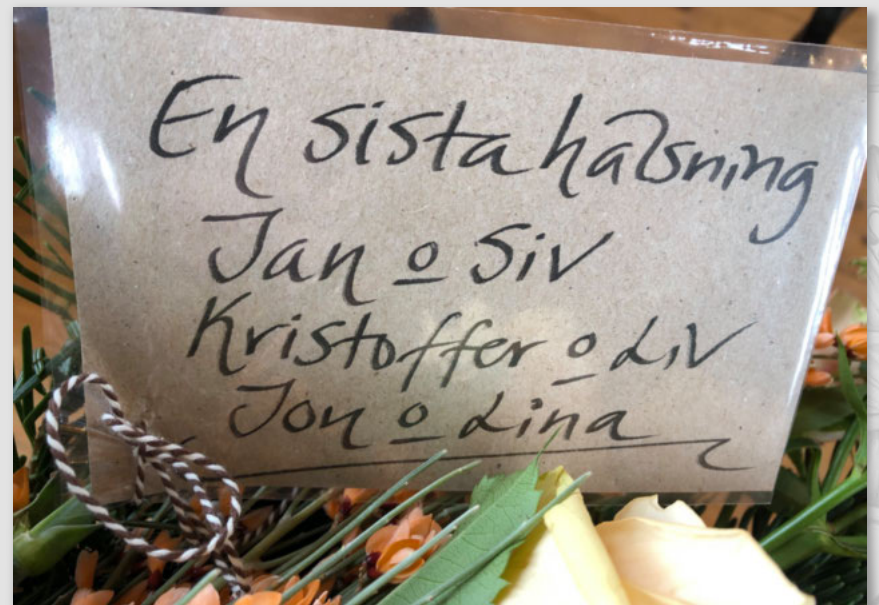 En sista hälsning
Jan o Siv
Kristoffer o Liv
Jon o Lina